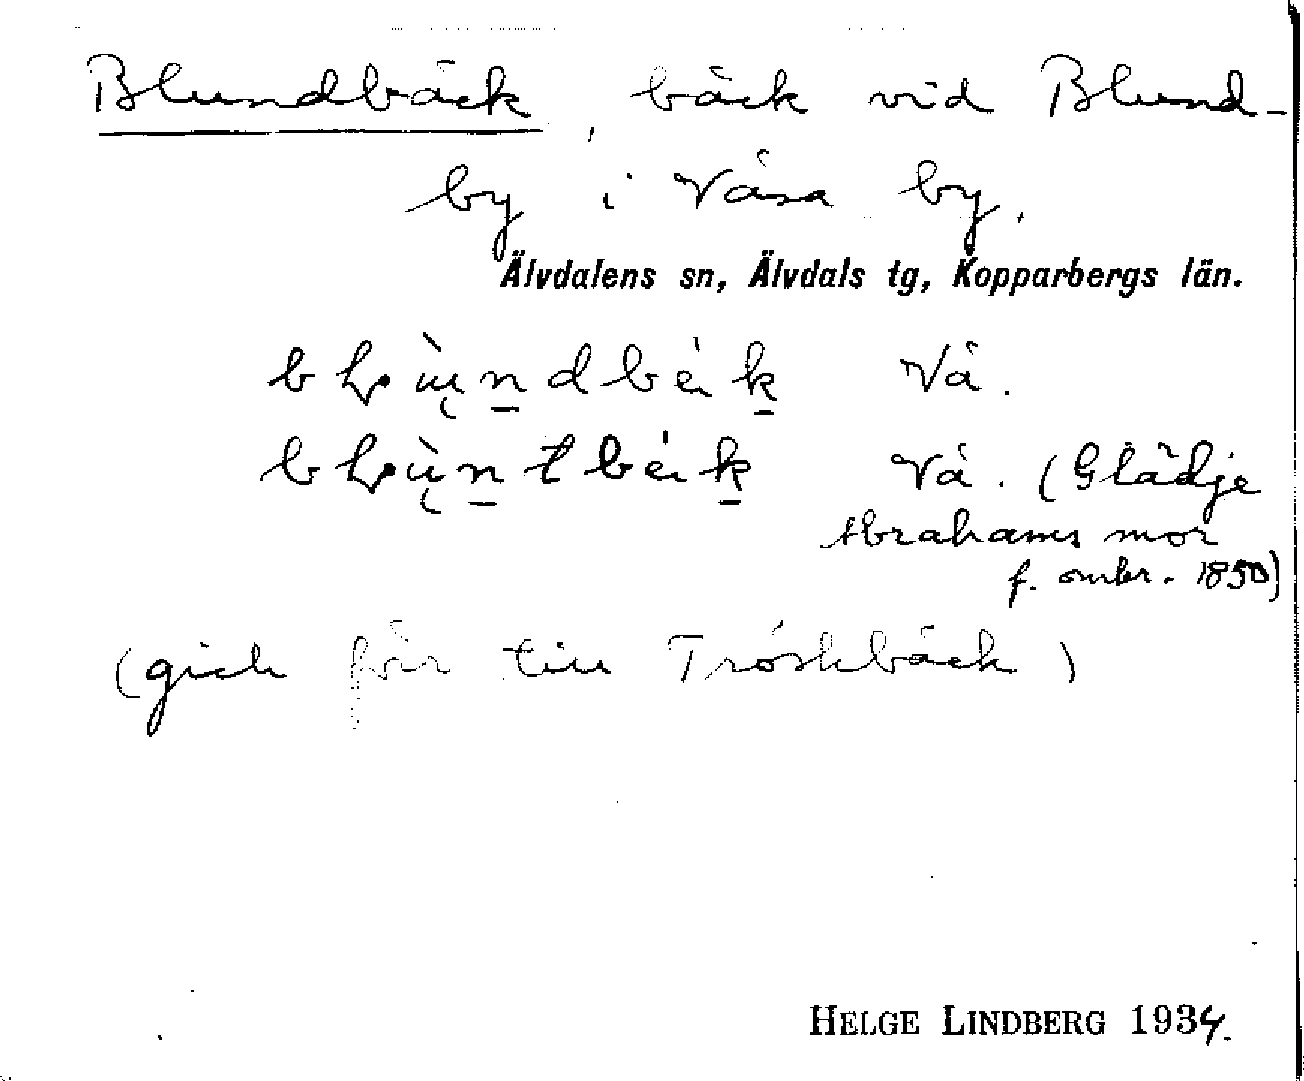 Blundbäck, bäck vid Blund-
by i Våsa by.
Älvdalens sn, Älvdals tg, Kopparbergs län.
Vå.
Vå. (Glädje
Abrahams mor
f. omkr. 1850)
(gick förr till Tröskbäck)
HELGE LINDBERG 1934.